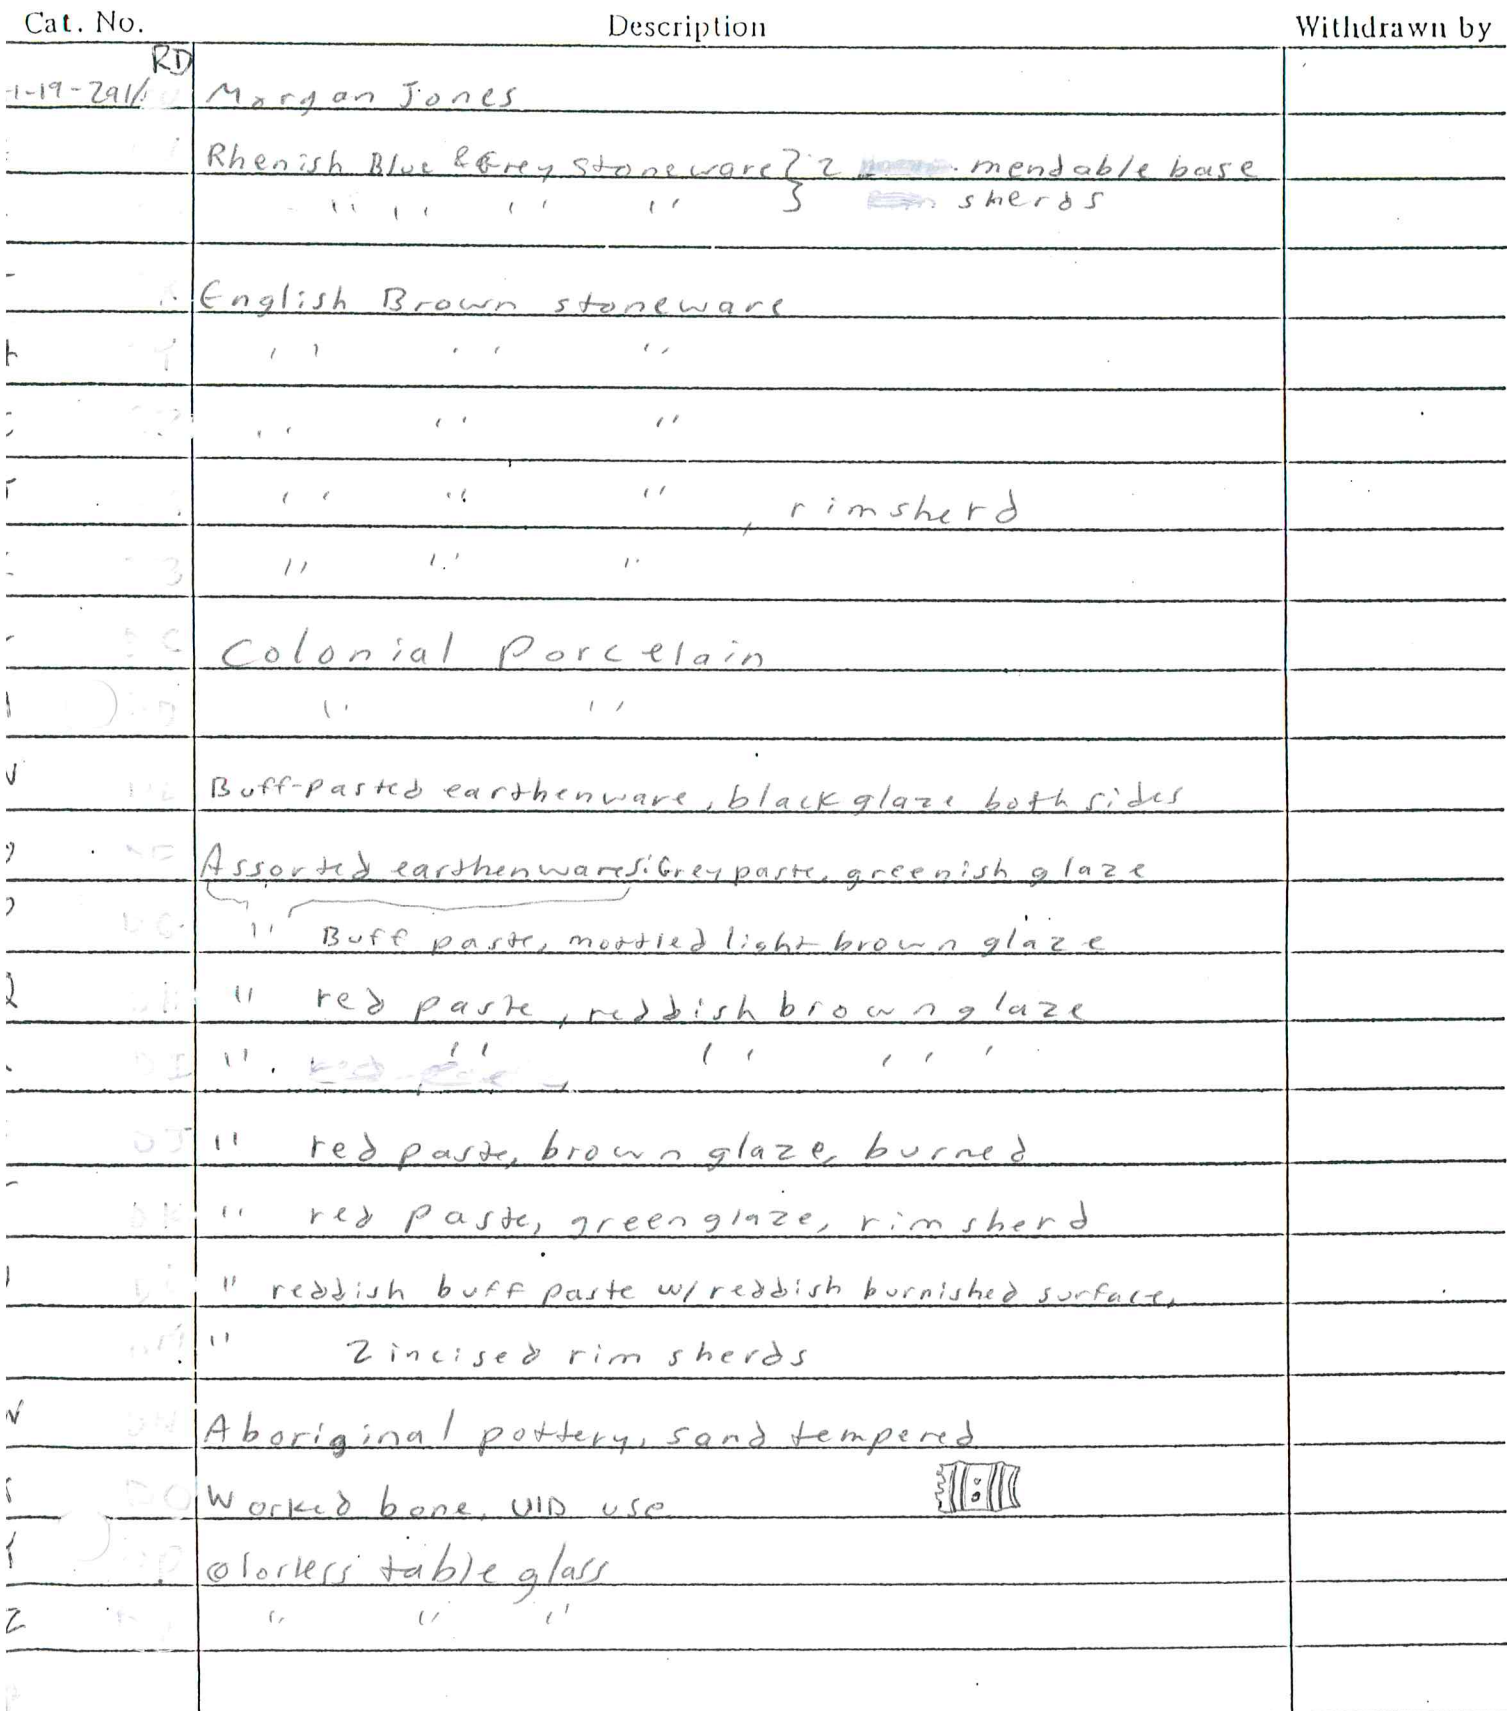 Cat. No. Description Withdrawn by
RD
1-19-291/ Morgan Jones
Rhenish Blue & Grey Stoneware } 2 mendable base
" " " " } sherds
English Brown stoneware
" " "
" " "
" " " , rimsherd
" " "
Colonial Porcelain
" "
Buff-pasted earthenware, black glaze both sides
Assorted earthenwares: Grey paste, greenish glaze
" Buff paste, mottled light brown glaze
" red paste, reddish brown glaze
" " " "
" red paste, brown glaze, burned
" red paste, green glaze, rim sherd
" reddish buff paste w/ reddish burnished surface,
" 2 incised rim sherds
Aboriginal pottery, sand tempered
Worked bone, UID use
Colorless table glass
" " "